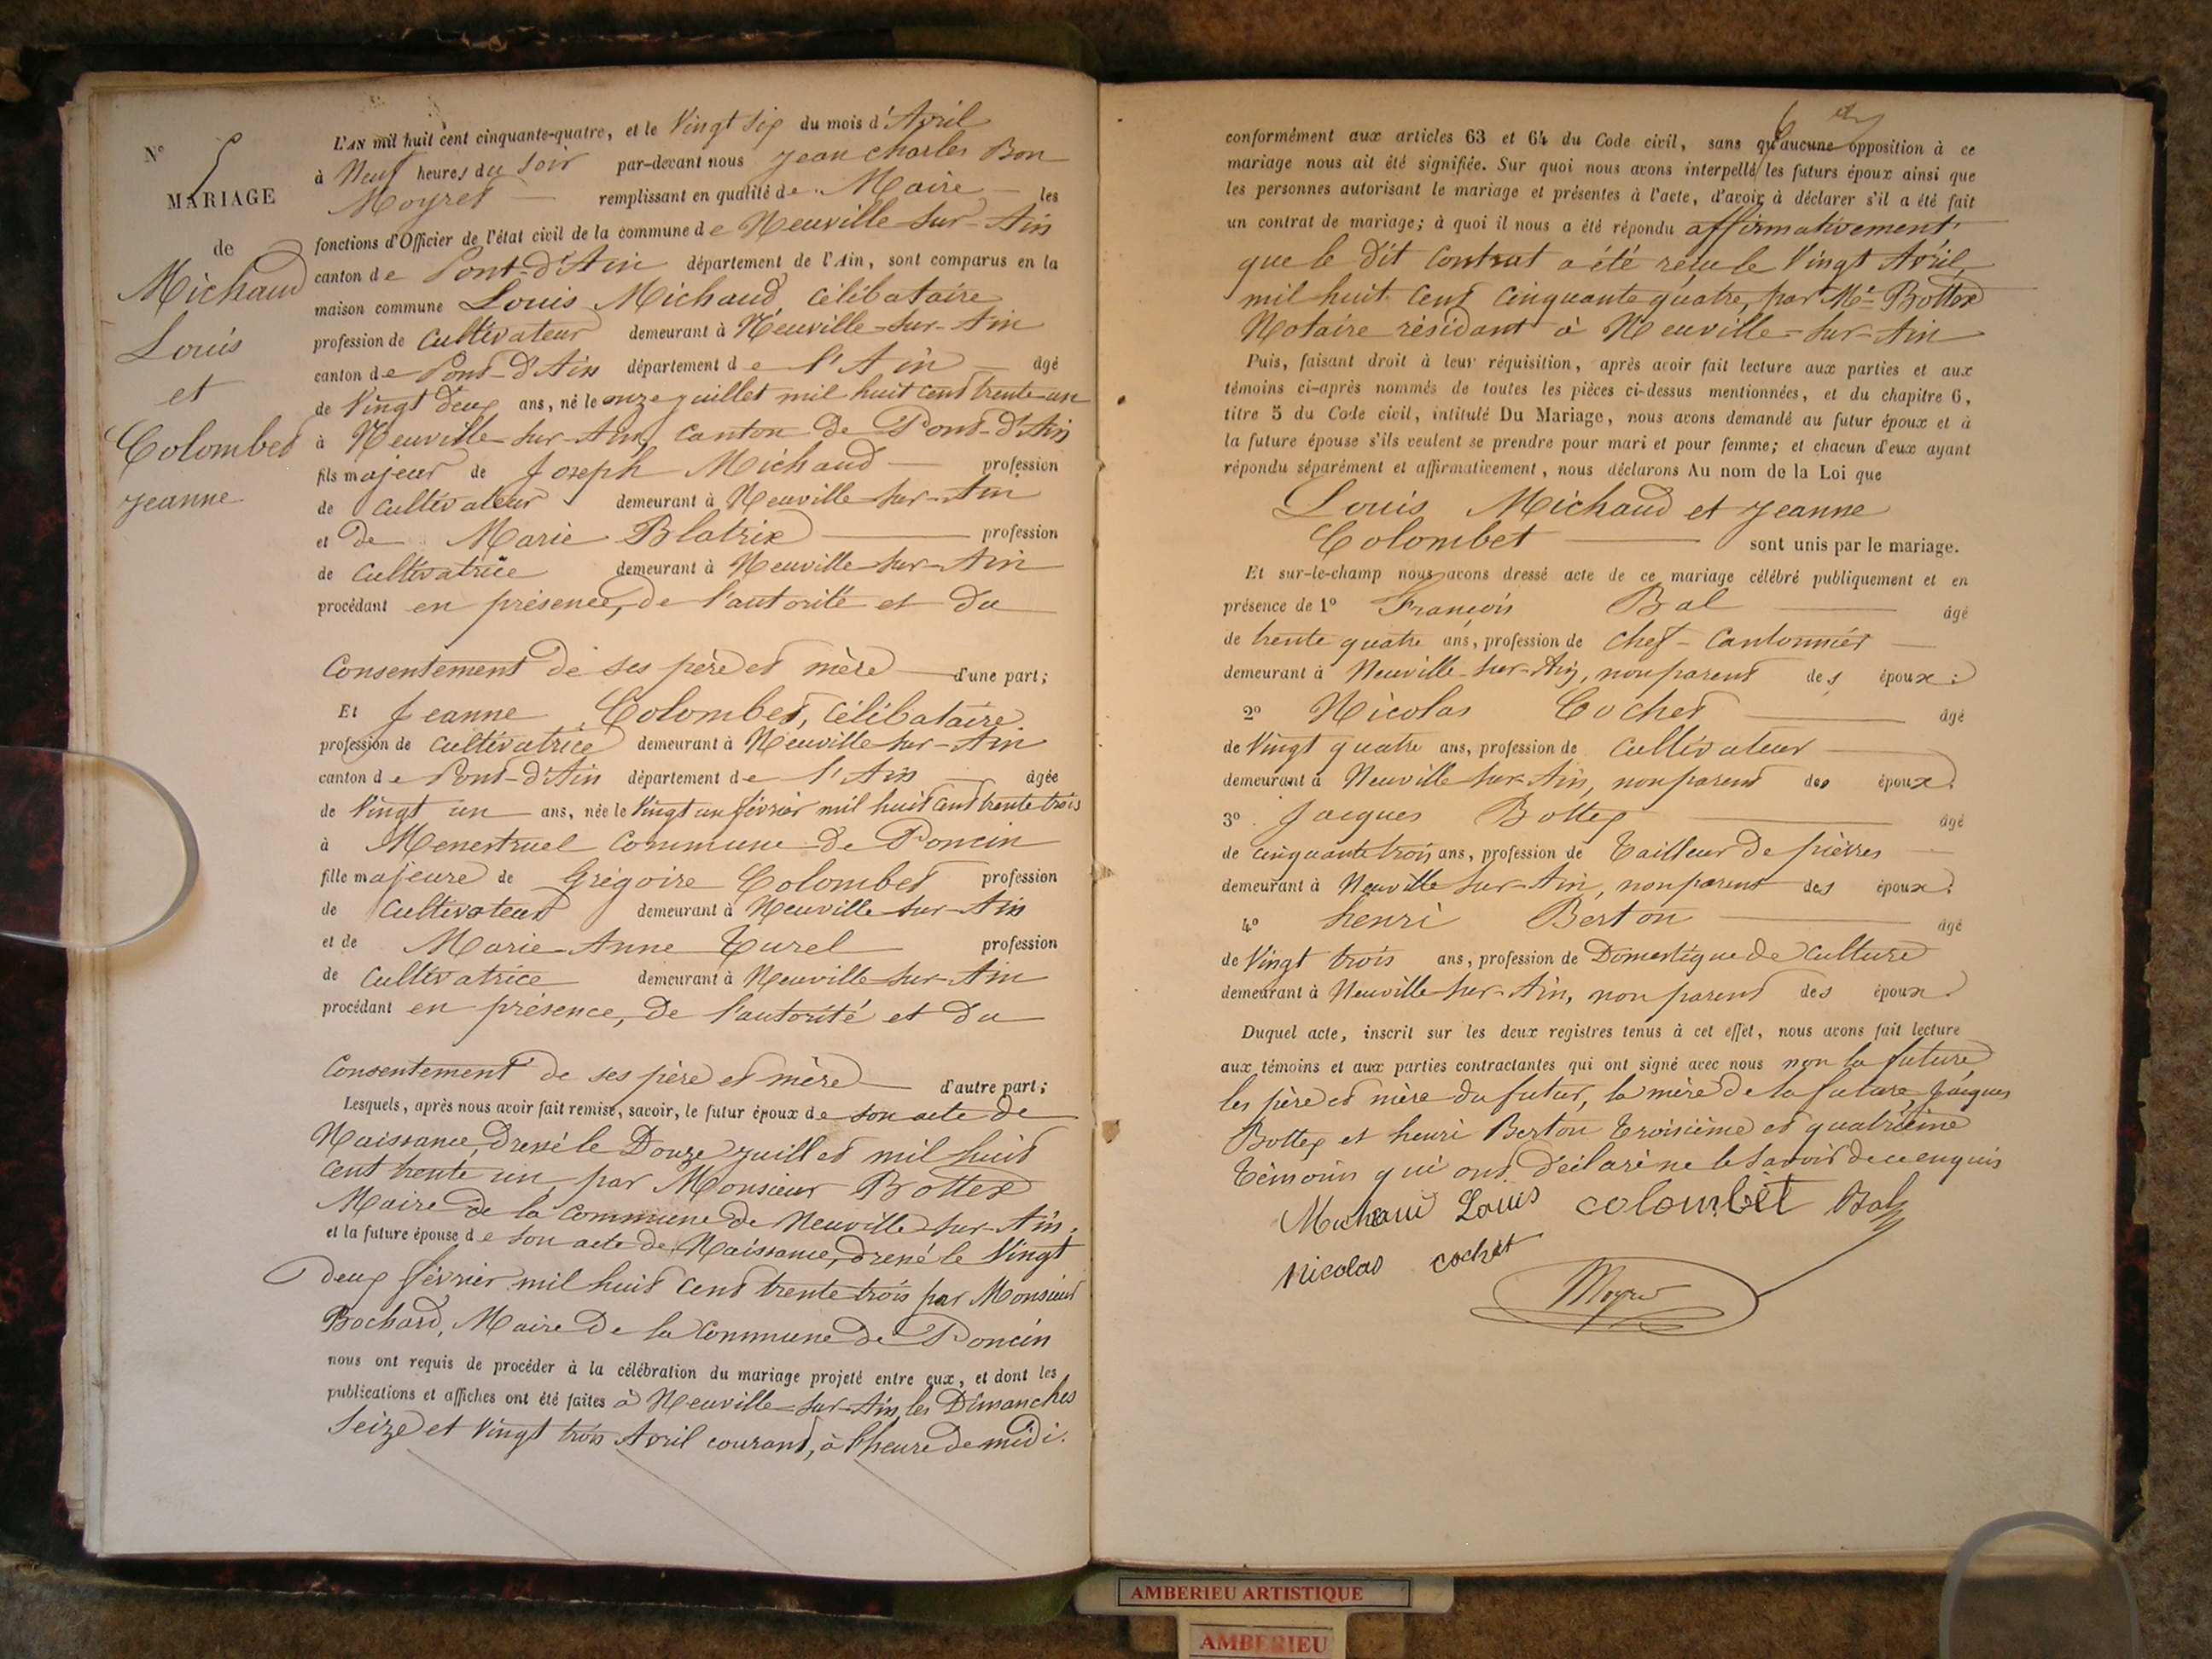 N° 5
MARIAGE
de
Michaud
Louis
et
Colombet
jeanne
L'AN mil huit cent cinquante-quatre, et le Vingt Six du mois d'Avril
à Neuf heures du Soir par-devant nous jean charles Bon
Moyret remplissant en qualité de Maire les
fonctions d'Officier de l'état civil de la commune de Neuville-sur-Ain
canton de Pont-d'Ain département de l'Ain, sont comparus en la
maison commune Louis Michaud, célibataire
profession de Cultivateur demeurant à Neuville-sur-Ain
canton de Pont-d'Ain département de l'Ain âgé
de Vingt deux ans, né le onze juillet mil huit cent trente-un
à Neuville-sur-Ain, canton de Pont-d'Ain
fils majeur de Joseph Michaud profession
de Cultivateur demeurant à Neuville-sur-Ain
et de Marie Blatrix profession
de Cultivatrice demeurant à Neuville-sur-Ain
procédant en présence, de l'autorité et du
Consentement de ses père et mère d'une part;
Et Jeanne Colombet, célibataire
profession de Cultivatrice demeurant à Neuville-sur-Ain
canton de Pont-d'Ain département de l'Ain âgée
de Vingt un ans, née le Vingt un février mil huit cent trente trois
à Menestruel Commune de Poncin
fille majeure de Grégoire Colombet profession
de Cultivateur demeurant à Neuville-sur-Ain
et de Marie-Anne Turel profession
de Cultivatrice demeurant à Neuville-sur-Ain
procédant en présence, de l'autorité et du
Consentement de ses père et mère d'autre part;
Lesquels, après nous avoir fait remise, savoir, le futur époux de son acte de
Naissance, dressé le Douze juillet mil huit
cent trente un, par Monsieur Bottex
Maire de la Commune de Neuville sur-Ain;
et la future épouse de son acte de Naissance, dressé le Vingt
deux février mil huit cent trente trois par Monsieur
Bochard, Maire de la Commune de Poncin
nous ont requis de procéder à la célébration du mariage projeté entre eux, et dont les
publications et affiches ont été faites à Neuville-sur-Ain, les Dimanches
Seize et Vingt trois Avril courant, à l'heure de midi.
6
conformément aux articles 63 et 64 du Code civil, sans qu'aucune opposition à ce
mariage nous ait été signifiée. Sur quoi nous avons interpellé les futurs époux ainsi que
les personnes autorisant le mariage et présentes à l'acte, d'avoir à déclarer s'il a été fait
un contrat de mariage; à quoi il nous a été répondu affirmativement,
que le dit Contrat a été reçu le Vingt Avril
mil huit cent cinquante quatre, par Me Bottex
Notaire résidant à Neuville-sur-Ain
Puis, faisant droit à leur réquisition, après avoir fait lecture aux parties et aux
témoins ci-après nommés de toutes les pièces ci-dessus mentionnées, et du chapitre 6,
titre 5 du Code civil, intitulé Du Mariage, nous avons demandé au futur époux et à
la future épouse s'ils veulent se prendre pour mari et pour femme; et chacun d'eux ayant
répondu séparément et affirmativement, nous déclarons Au nom de la Loi que
Louis Michaud et jeanne
Colombet sont unis par le mariage.
Et sur-le-champ nous avons dressé acte de ce mariage célébré publiquement et en
présence de 1° François Bal âgé
de trente quatre ans, profession de Chef-Cantonnier
demeurant à Neuville-sur-Ain, non parent des époux;
2° Nicolas Cochet âgé
de Vingt quatre ans, profession de Cultivateur
demeurant à Neuville-sur-Ain, non parent des époux;
3° Jacques Bottex âgé
de cinquante trois ans, profession de Tailleur de pierres
demeurant à Neuville-sur-Ain, non parent des époux;
4° henri Berton âgé
de Vingt trois ans, profession de Domestique de Culture
demeurant à Neuville-sur-Ain, non parent des époux.
Duquel acte, inscrit sur les deux registres tenus à cet effet, nous avons fait lecture
aux témoins et aux parties contractantes qui ont signé avec nous non la future,
les père et mère du futur, la mère de la future, Jacques
Bottex et henri Berton troisième et quatrième
témoins qui ont déclaré ne le savoir de ce enquis
Michaud Louis colombet Bal
Nicolas cochet
Moyret
AMBERIEU ARTISTIQUE
AMBERIEU